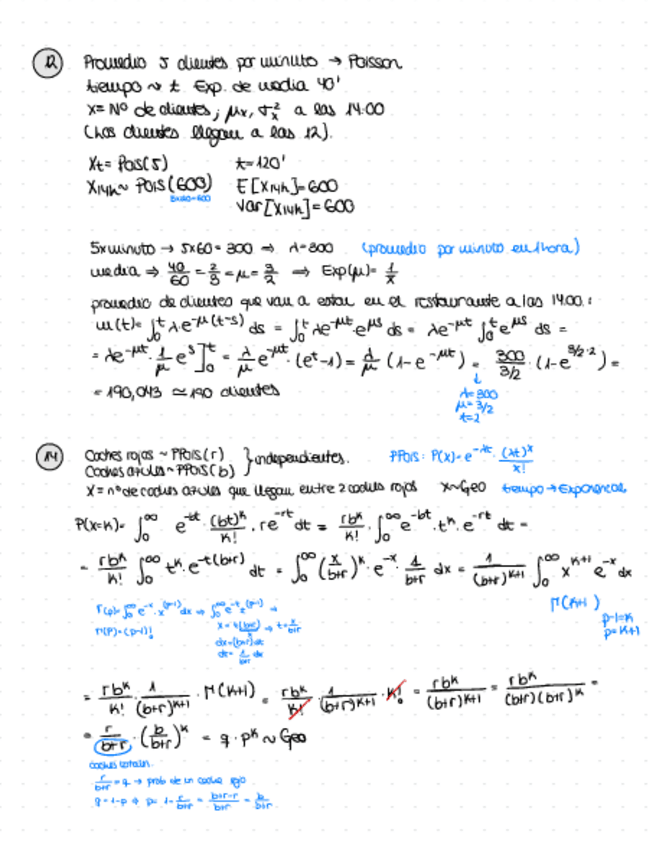 12 Promedio 5 clientes por minuto → Poisson
tiempo ~ t Exp. de media 40'
X = Nº de clientes ; μx, σ²x a las 14:00
(Los clientes llegan a las 12).
Xt = Pois(5) t = 120'
X14h ~ Pois(600) E[X14h] = 600
5x120=600
Var[X14h] = 600
5 x minuto → 5x60 = 300 ⇒ λ=300 (promedio por minuto en 1 hora)
media ⇒ 40/60 = 2/3 = μ = 3/2 ⇒ Exp(μ) = 1/x
promedio de clientes que van a estar en el restaurante a las 14:00:
m(t) = ∫₀ᵗ λ·e^{-μ(t-s)} ds = ∫₀ᵗ λe^{-μt} e^{μs} ds = λe^{-μt} ∫₀ᵗ e^{μs} ds =
= λe^{-μt} · 1/μ e^s]₀ᵗ = λ/μ e^{-μt} · (e^t - 1) = λ/μ (1 - e^{-μt}) = 300/(3/2) · (1 - e^{3/2·2}) =
↓
λ=300
μ=3/2
t=2
= 190,043 ≃ 190 clientes
14 Coches rojos ~ PPois(r)
Coches azules ~ PPois(b) } independientes.
PPois: P(x) = e^{-λt} · (λt)^x / x!
X = nº de coches azules que llegan entre 2 coches rojos X~Geo tiempo → Exponencial
P(X=K) = ∫₀^∞ e^{-bt} · (bt)^K / K! · re^{-rt} dt = rb^K / K! · ∫₀^∞ e^{-bt} · t^K · e^{-rt} dt =
= rb^K / K! ∫₀^∞ t^K · e^{-t(b+r)} dt = ∫₀^∞ (x/(b+r))^K · e^{-x} · 1/(b+r) dx = 1/(b+r)^{K+1} ∫₀^∞ x^{K+1} e^{-x} dx
Γ(p) = ∫₀^∞ e^{-x} · x^{(p-1)} dx
Γ(p) = (p-1)!
x = t(b+r) → t = x/(b+r)
dx = (b+r) dt
dt = 1/(b+r) dx
Γ(K+1)
p-1=K
p=K+1
= rb^K / K! · 1/(b+r)^{K+1} · Γ(K+1) = rb^K / K! · 1/(b+r)^{K+1} · K! = rb^K / (b+r)^{K+1} = rb^K / (b+r)(b+r)^K =
= r/(b+r) · (b/(b+r))^K = q · p^K ~ Geo
coches totales.
r/(b+r) = q → prob de un coche rojo
q = 1-p → p = 1 - r/(b+r) = (b+r-r)/(b+r) = b/(b+r)